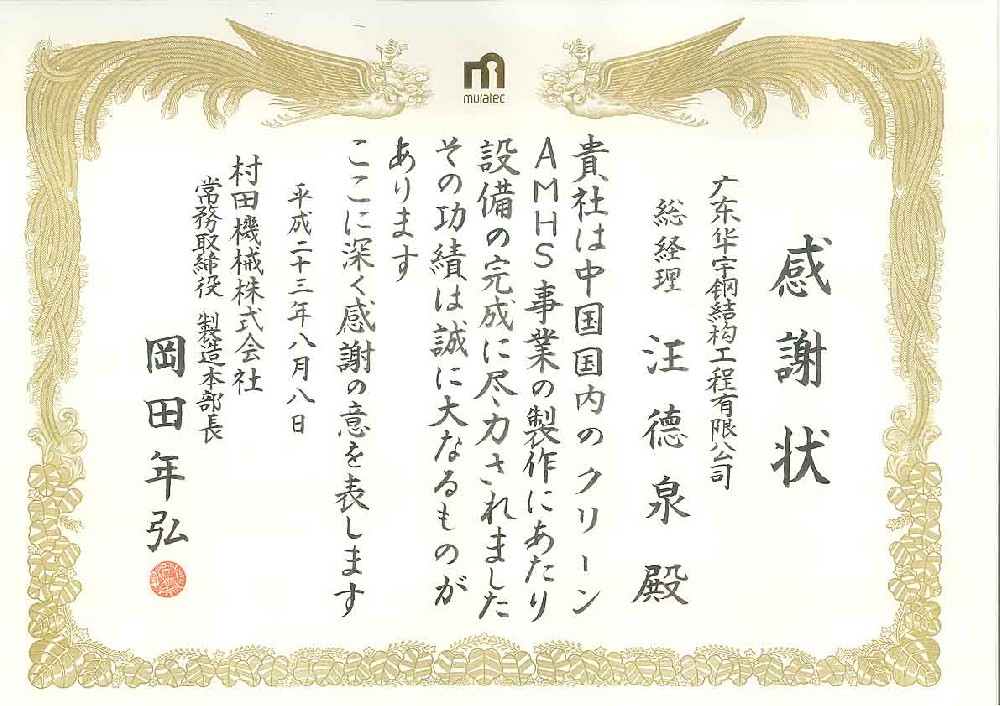 muratec
感謝状
广东华宇钢結构工程有限公司
総経理 汪德泉殿
貴社は中国国内のクリーン
AMHS事業の製作にあたり
設備の完成に尽力されました
その功績は誠に大なるものが
あります
ここに深く感謝の意を表します
平成二十三年八月八日
村田機械株式会社
常務取締役 製造本部長
岡田年弘